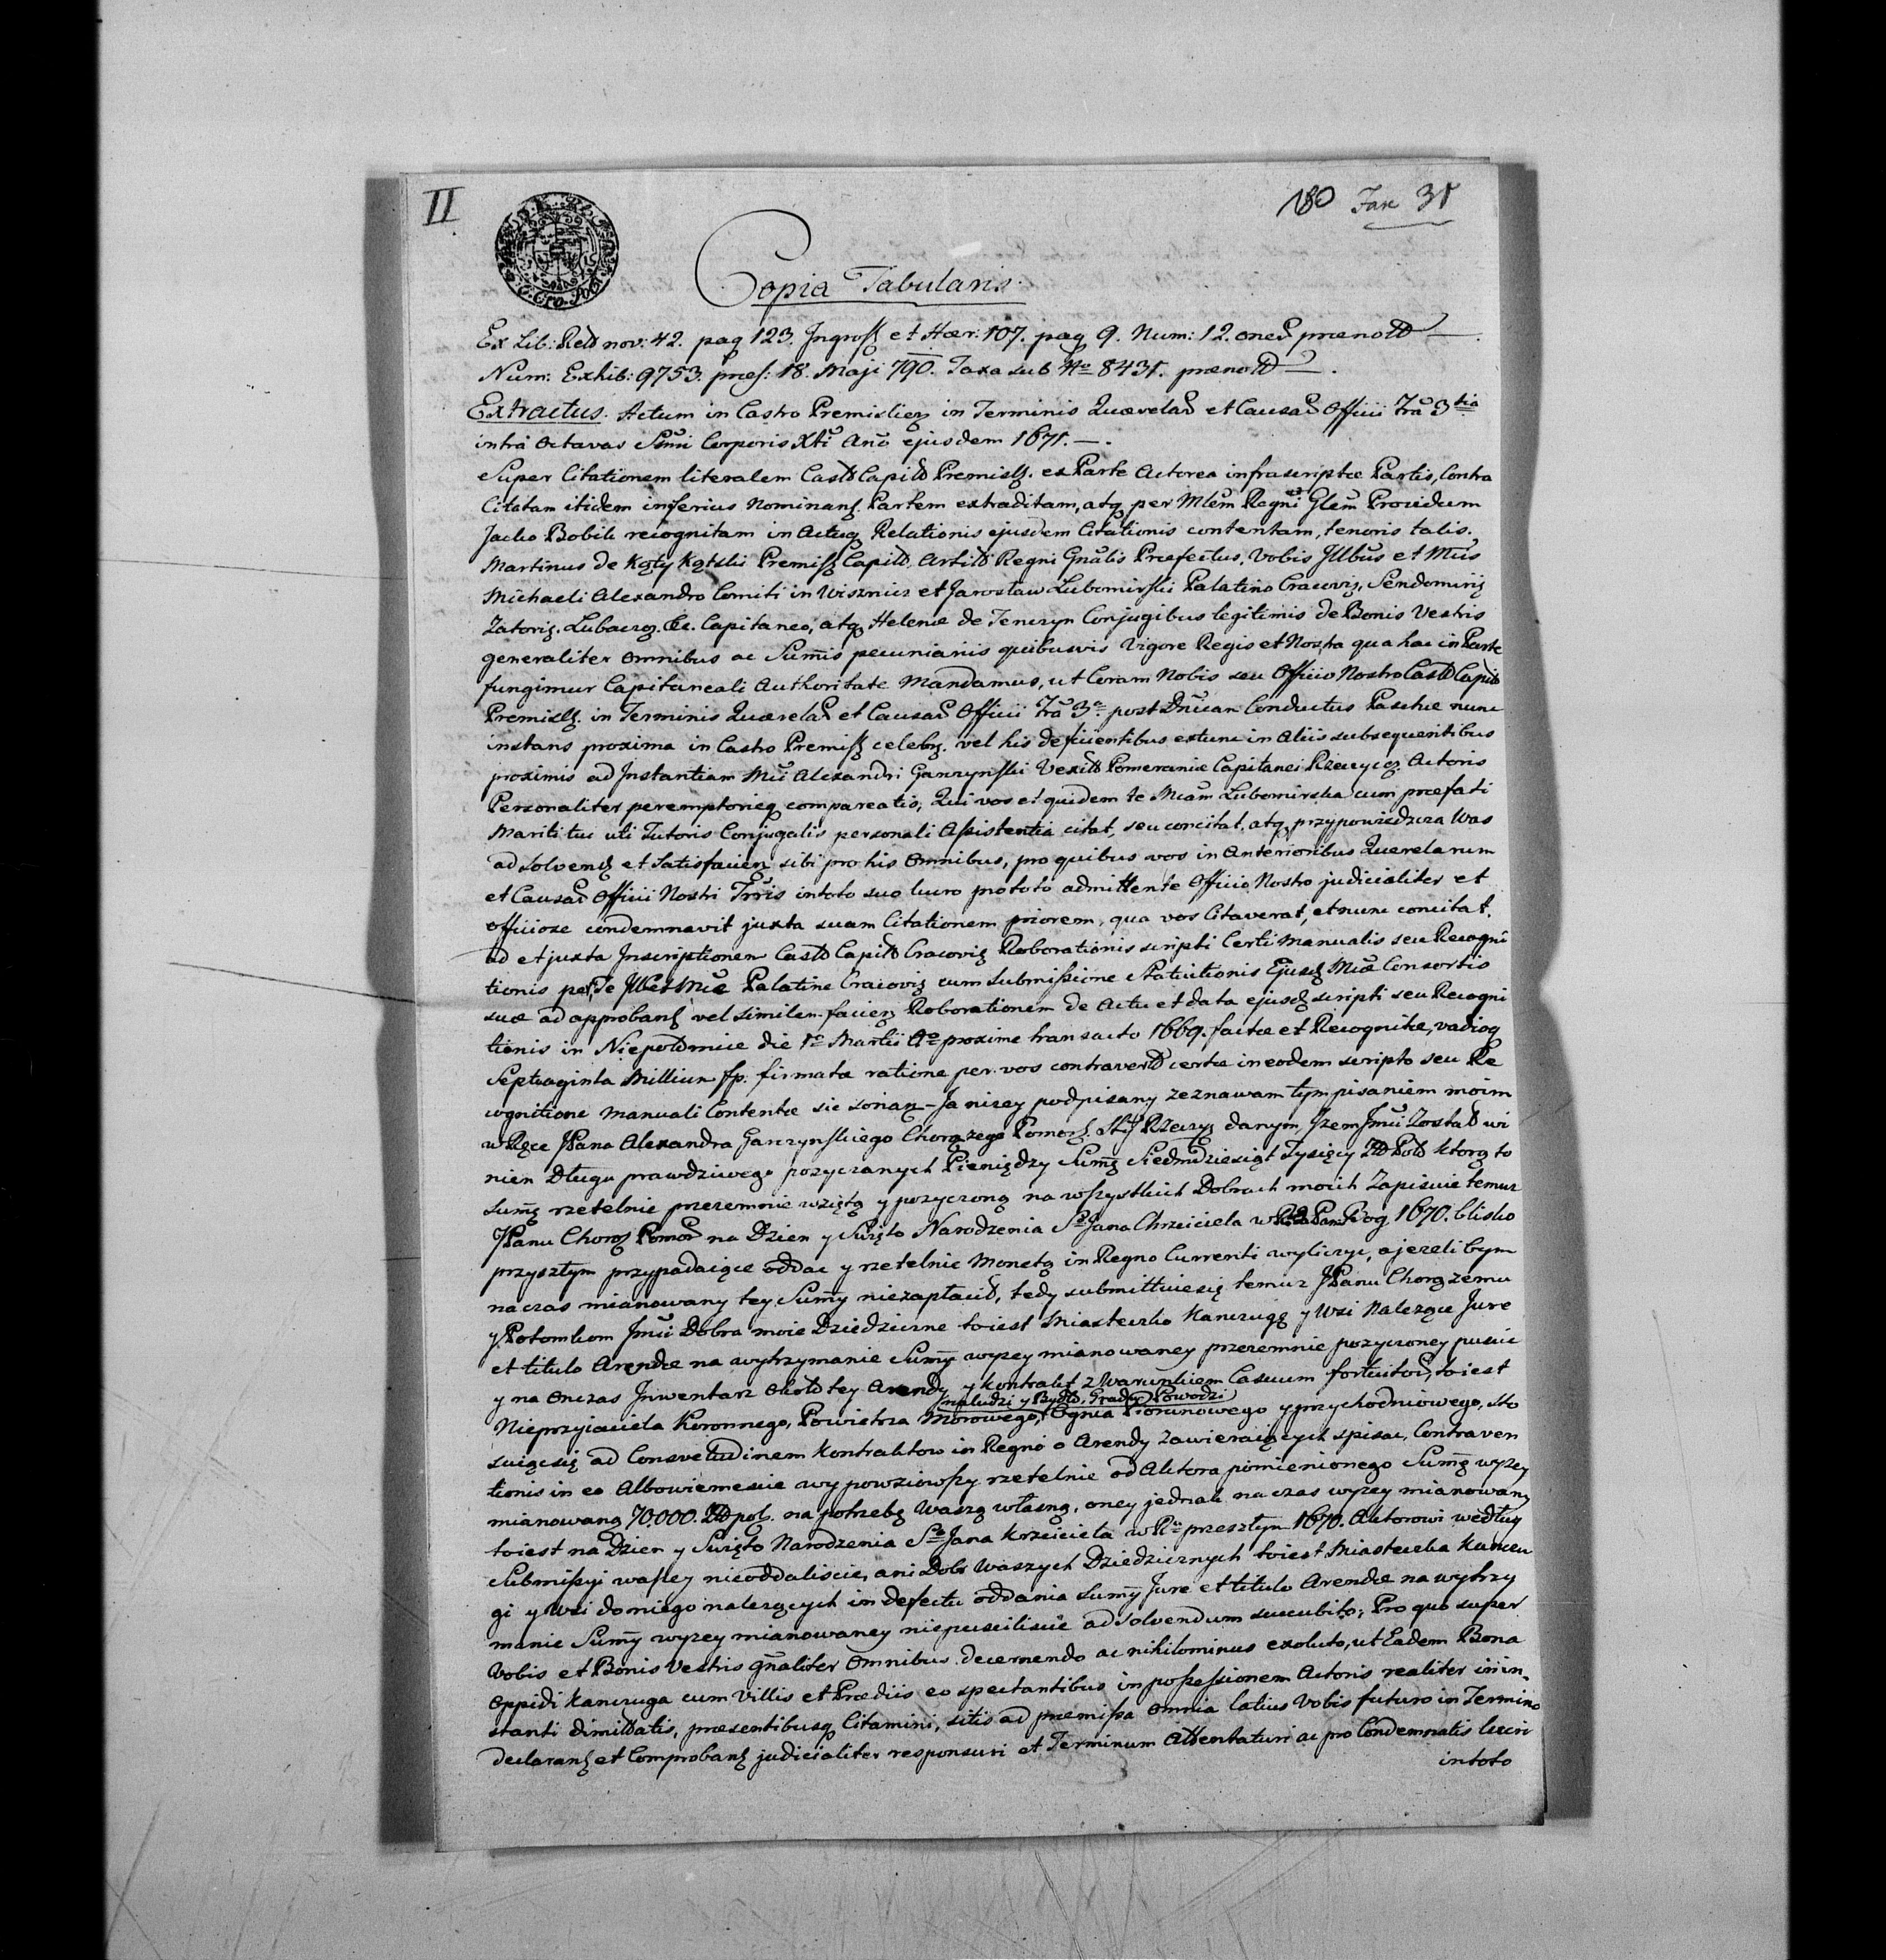 II
180 Fasc 31
Copia Tabularis
Ex Lib: Relĩ nov: 42. pag 123. Ingross et Hær: 107. pag 9. Num: 12. oner prænott
Num: Exhib: 9753. præs: 18. Maji 790. Taxa sub Nro 8431. prænott
Extractus. Actum in Castro Premislien in Terminis Querelar et Causar Officii Fra 3tia
intra Octavas Ssmi Corporis Xti Ano ejusdem 1671.
Super Citationem literalem Cast Capit Premisl. ex Parte Actorea infrascriptæ Partis, Contra
Citatam itidem inferius Nominan Partem extraditam, atq per Mlem Regni Glem Providum
Jacko Bobik recognitam in Actuq Relationis ejusdem Citationis contentam, tenoris talis.
Martinus de Kąty Kątski Premisl Capit. Artil Regni Gnalis Præfectus, Vobis Illbus et Mcis
Michaeli Alexandro Comiti in Wisznicz et Jaroslaw Lubomirski Palatino Cracovi, Sendomiri
Zatori. Lubacz. &c. Capitaneo, atq Helenæ de Tenczyn Conjugibus legitimis de Bonis Vestris
generaliter Omnibus ac Summis pecuniariis quibusvis Vigore Regis et Nostra qua hac in Parte
fungimur Capitaneali Authoritate Mandamus, ut Coram Nobis seu Officio Nostro Cast Capit
Premisl. in Terminis Querelar et Causar Officii Fra 3a post Dnicam Conductus Paschæ nunc
instans proxima in Castro Premisl celebr. vel his deficientibus extunc in Aliis subsequentibus
proximis ad Instantiam Mci Alexandri Garczynski Vexil Pomeraniæ Capitanei Rzeczyc. Actoris
Personaliter peremptorieq compareatis, Qui vos et quidem te Mcam Lubomirska cum præfati
Mariti tui uti Tutoris Conjugalis personali Assistentia citat, seu concitat, atq przypowiedzcza Was
ad solvend et Satisfacien sibi pro his Omnibus, pro quibus vos in Anterioribus Querelarum
et Causar Officii Nostri Trris in toto suo lucro pro toto admittente Officio Nostro judicialiter et
officiose condemnavit juxta suam Citationem priorem, qua vos Citaverat, et nunc concitat.
ad et juxta Inscriptionem Cast Capit Cracovi Roborationis scripti Certi Manualis seu Recogni
tionis per Te Palatine Cracovi cum Submissione Ejusd Mcæ Consortis
suæ ad approband vel similem facien Roborationem de Actu et data ejusd scripti seu Recogni
tionis in Niepołomice die 1o Martii Ao proxime transacto 1669. factæ et Recognitæ, vadioq
Septuaginta Millium fp. firmatæ ratione per vos contravent certæ in eodem scripto seu Re
cognitione Manuali Contentæ sic sonan – Ja nizey podpisany zeznawam tym pisaniem moim
w Ręce JPana Alexandra Garczynskiego Chorązego Pomor. Stty Rzeczy danym, Jzem Jmci Został wi
nien Długu prawdziwego pozyczanych Pieniędzy Summę Siedmdziesiąt Tysięcy Zł Pol ktorą to
Summę rzetelnie przezemnie wziętą y pozyczoną na wszystkich Dobrach moich Zapisuie temuz
JPanu Choroz Pomor na Dzien y Swięto Narodzenia So Jana Chrzciciela w 1670. blisko
przyszłym przypadaiące oddac y rzetelnie Monetą in Regno Currenti wyliczyc, a jezeli bym
naczas mianowany tey Summy niezapłacił, tedy submittuie się temuz JPanu Chorązemu
y Potomkom Jmci Dobra moie Dziedziczne toiest Miasteczko Kanczugę y Wsi Nalezące Jure
et titulo Arendæ na wytrzymanie Summy wyzey mianowaney przezemnie pozyczoney puscic
y na onczas Jnwentarz około tey Arendy y Kontrakt z Warunkiem Casuum fortuitor, toiest
na ludzi y Bydło, Gradu, Powodzi
Nieprzyiaciela Koronnego, Powietrza Morowego, Ognia Piorunowego y przychodniowego, sto
suiąc się ad Consvetudinem Kontraktow in Regno o Arendy Zawieraiących spisac, Contraven
tionis in eo Albowiemescie wypowziowszy rzetelnie od Aktora pomienionego Summę wyzey
mianowaną 70,000. Zł pol. na potrzebę Waszą własną, oney jednak na czas wyzey mianowany
toiest na Dzien y Swięto Narodzenia So Jana Krzciciela w Ru przeszłym 1670. Aktorowi według
Submissyi waszey nieoddaliscie, ani Dobr Waszych Dziedzicznych toiest Miasteczka Kanczu
gi y Wsi do niego nalezących in defectu oddania Summy Jure et titulo Arendæ na wytrzy
manie Summy wyzey mianowaney niepuscilisicie ad solvendum succubito; Pro quo super
Vobis et Bonis Vestris gnaliter Omnibus decernendo ac nihilominus exoluto, ut Eadem Bona
Oppidi Kanczuga cum Villis et Prædiis eo spectantibus in possessionem Actoris realiter in in-
stanti dimittatis, præsentibusq Citamini, sitis ad præmissa Omnia latius Vobis futuro in Termino
declarand et Comproband judicialiter responsuri et Terminum Attentaturi ac pro Condemnatis lucri
in toto